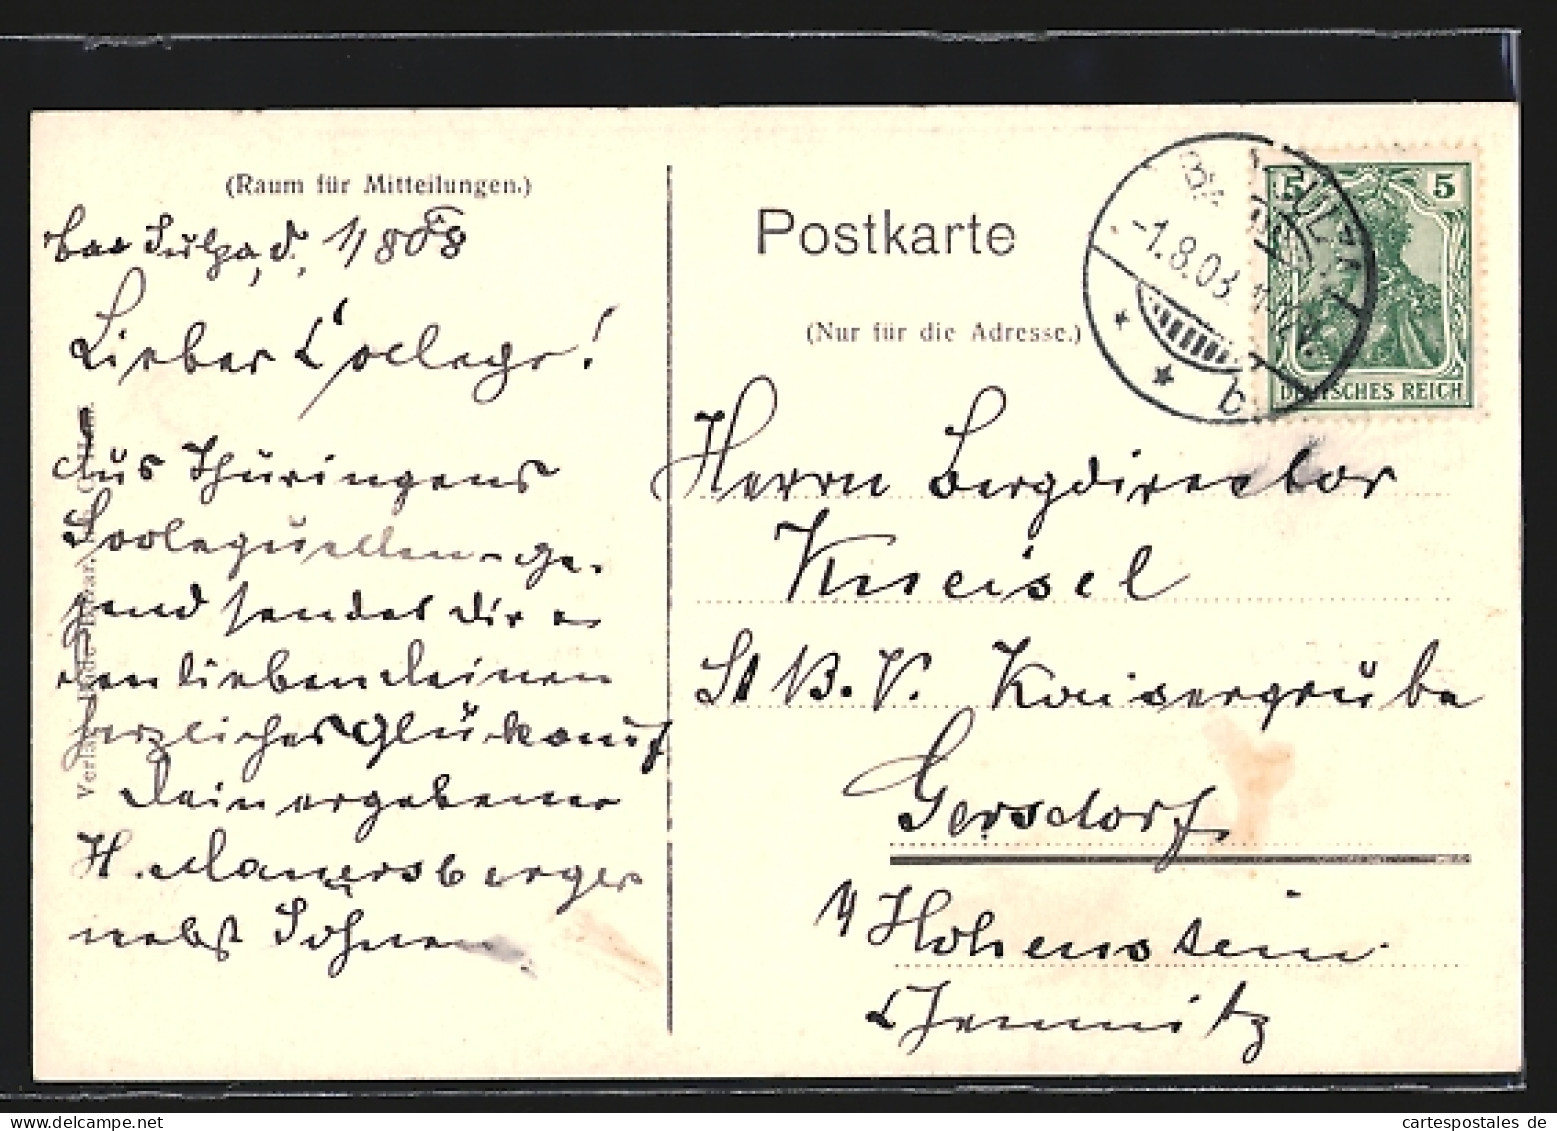 (Raum für Mitteilungen.)
Bad Sulza, d. 1/8 08
Lieber College!
Aus Thüringens
Soolequellen-Ge-
gend sendet Dir u
den lieben Deinen
herzliches Glückauf
Dein ergebener
H. Mauersberger
nebst Söhnen
Postkarte
(Nur für die Adresse.)
BAD SULZA
-1.8.08.
b
5 5
DEUTSCHES REICH
Herrn Bergdirector
Kneisel
St B. V. Kaisergrube
Gersdorf
Hohenstein
Chemnitz
cartespostales de